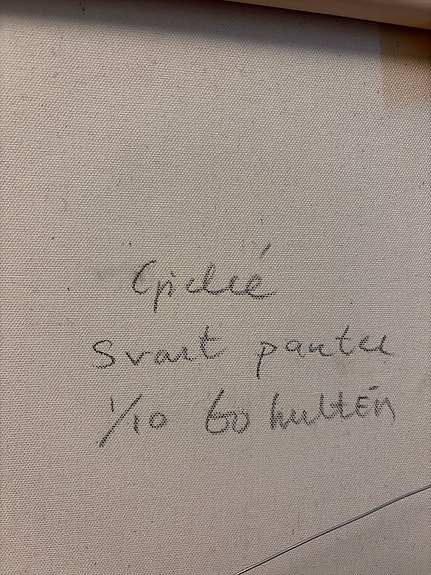 Giclée
Svart panter
1/10 Bo hultén